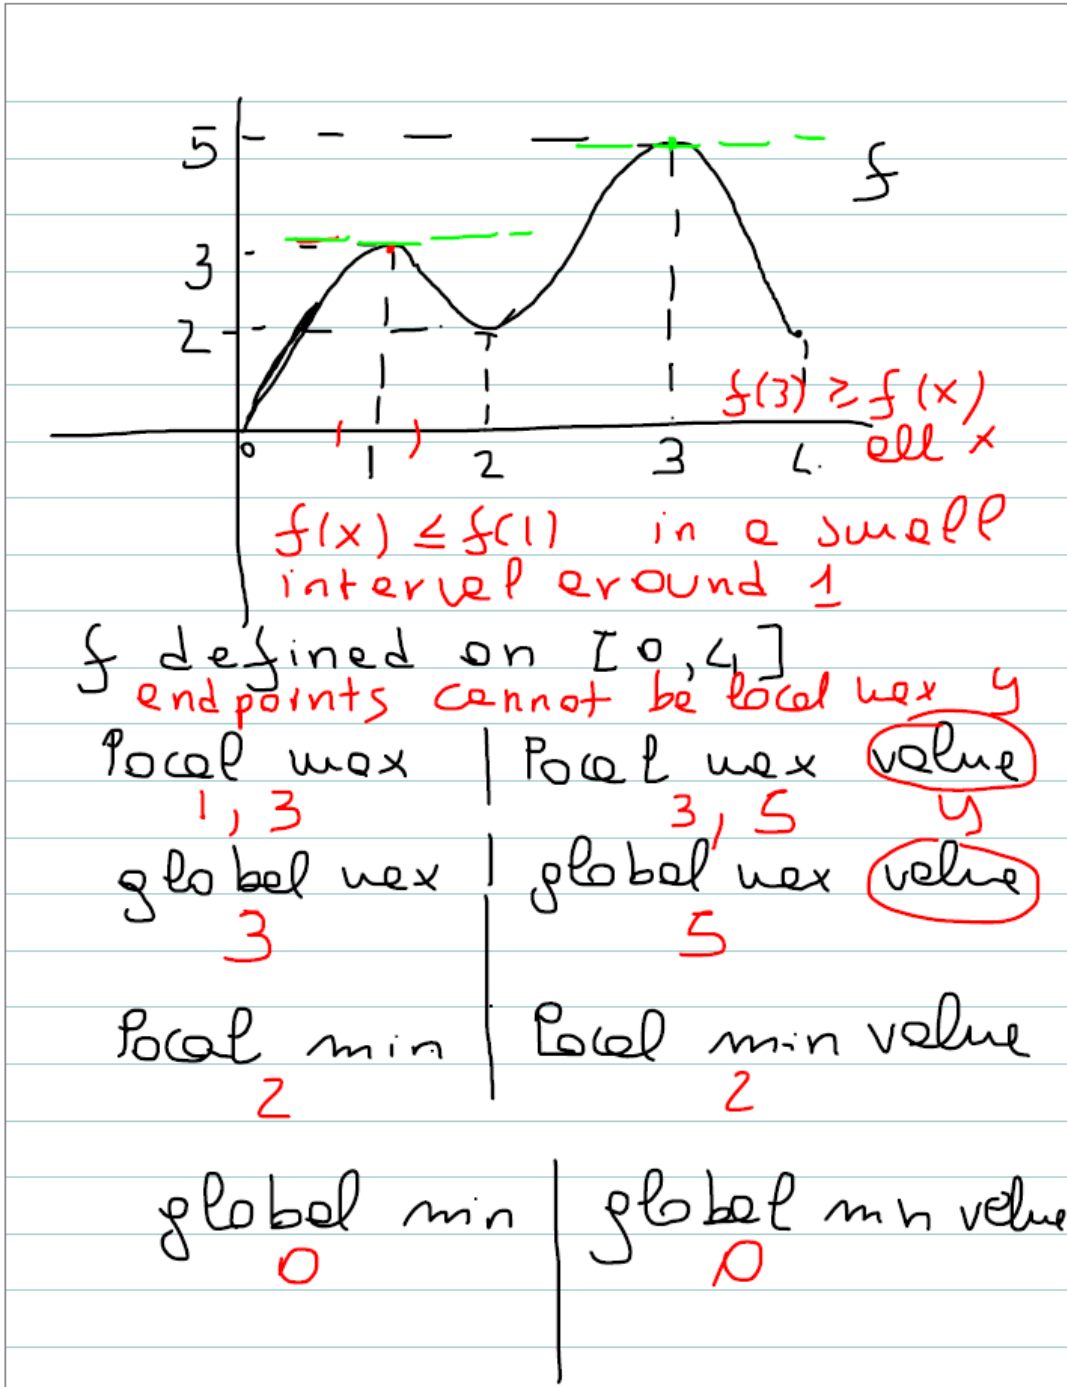 5
f
3
2
f(3) ≥ f(x)
all x
0 1 2 3 4
f(x) ≤ f(1) in a small
interval around 1
f defined on [0,4]
endpoints cannot be local max y
local max | local max value
1, 3 3, 5 y
global max | global max value
3 5
local min | local min value
2 2
global min | global min value
0 0